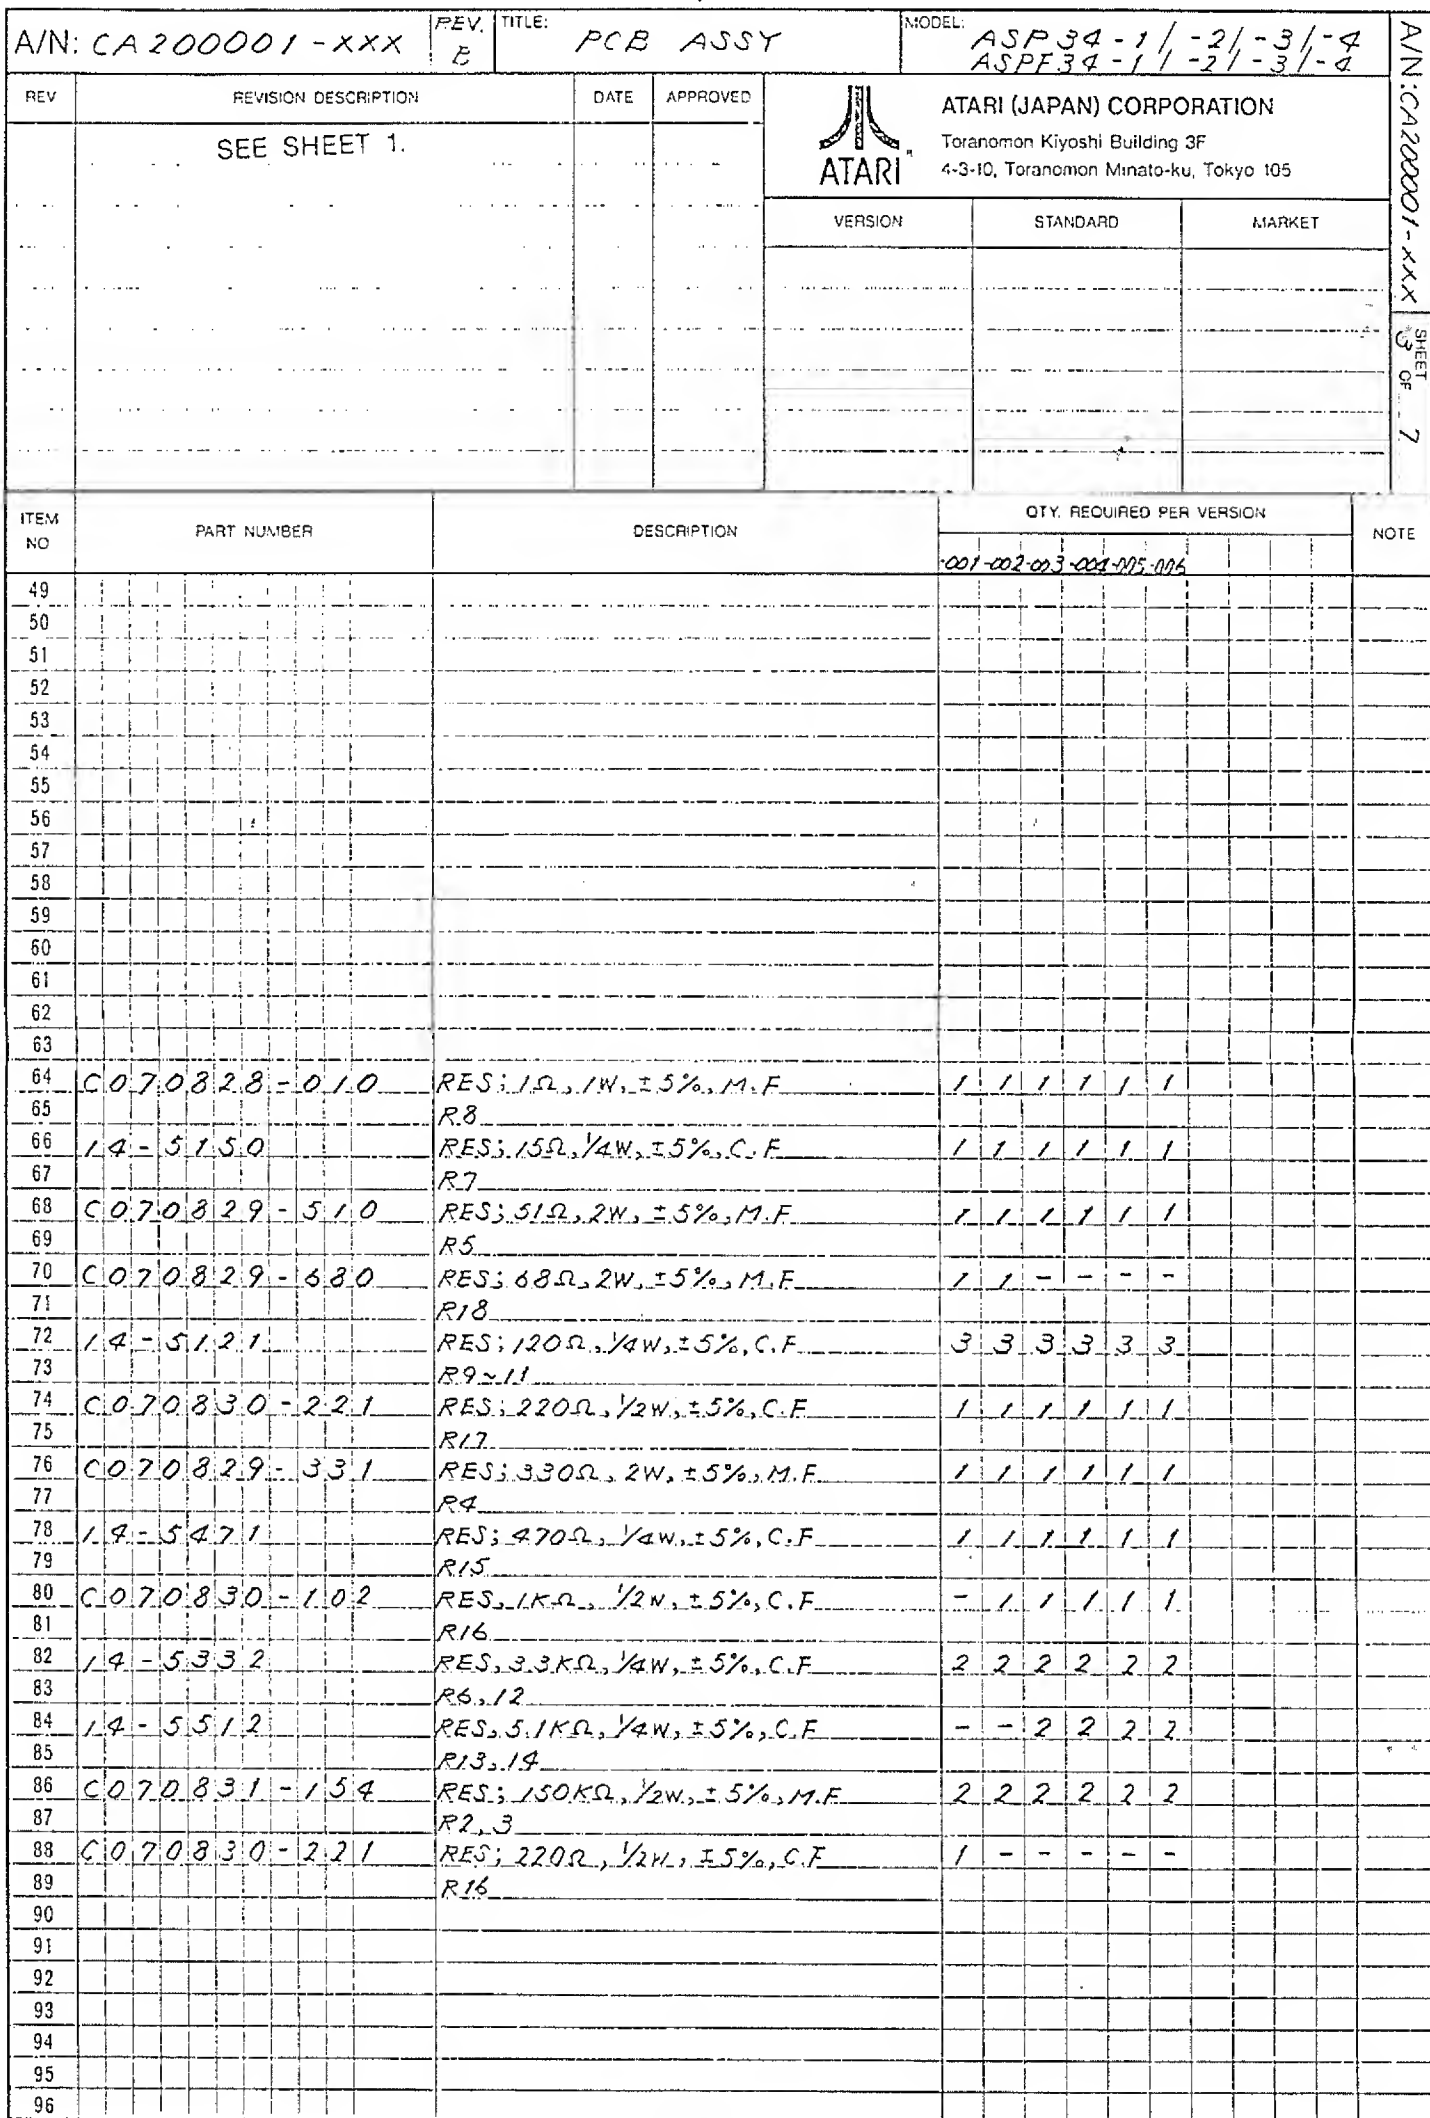 A/N: CA200001-XXX REV. E TITLE: PCB ASSY MODEL: ASP34-1/, -2/, -3/, -4
ASPF34-1/, -2/, -3/, -4
REV REVISION DESCRIPTION DATE APPROVED
SEE SHEET 1.
ATARI
ATARI (JAPAN) CORPORATION
Toranomon Kiyoshi Building 3F
4-3-10, Toranomon Minato-ku, Tokyo 105
VERSION STANDARD MARKET
A/N: CA200001-XXX SHEET 3 OF 7
ITEM NO PART NUMBER DESCRIPTION QTY. REQUIRED PER VERSION NOTE
-001 -002 -003 -004 -005 -006
49
50
51
52
53
54
55
56
57
58
59
60
61
62
63
64 C070828-010 RES; 1Ω, 1W, ±5%, M.F 1 1 1 1 1 1
65 R8
66 14-5150 RES; 15Ω, 1/4W, ±5%, C.F 1 1 1 1 1 1
67 R7
68 C070829-510 RES; 51Ω, 2W, ±5%, M.F 1 1 1 1 1 1
69 R5
70 C070829-680 RES; 68Ω, 2W, ±5%, M.F 1 1 - - - -
71 R18
72 14-5121 RES; 120Ω, 1/4W, ±5%, C.F 3 3 3 3 3 3
73 R9~11
74 C070830-221 RES; 220Ω, 1/2W, ±5%, C.F 1 1 1 1 1 1
75 R17
76 C070829-331 RES; 330Ω, 2W, ±5%, M.F 1 1 1 1 1 1
77 R4
78 14-5471 RES; 470Ω, 1/4W, ±5%, C.F 1 1 1 1 1 1
79 R15
80 C070830-102 RES, 1KΩ, 1/2W, ±5%, C.F - 1 1 1 1 1
81 R16
82 14-5332 RES, 3.3KΩ, 1/4W, ±5%, C.F 2 2 2 2 2 2
83 R6,12
84 14-5512 RES, 5.1KΩ, 1/4W, ±5%, C.F - - 2 2 2 2
85 R13,14
86 C070831-154 RES; 150KΩ, 1/2W, ±5%, M.F 2 2 2 2 2 2
87 R2,3
88 C070830-221 RES; 220Ω, 1/2W, ±5%, C.F 1 - - - - -
89 R16
90
91
92
93
94
95
96